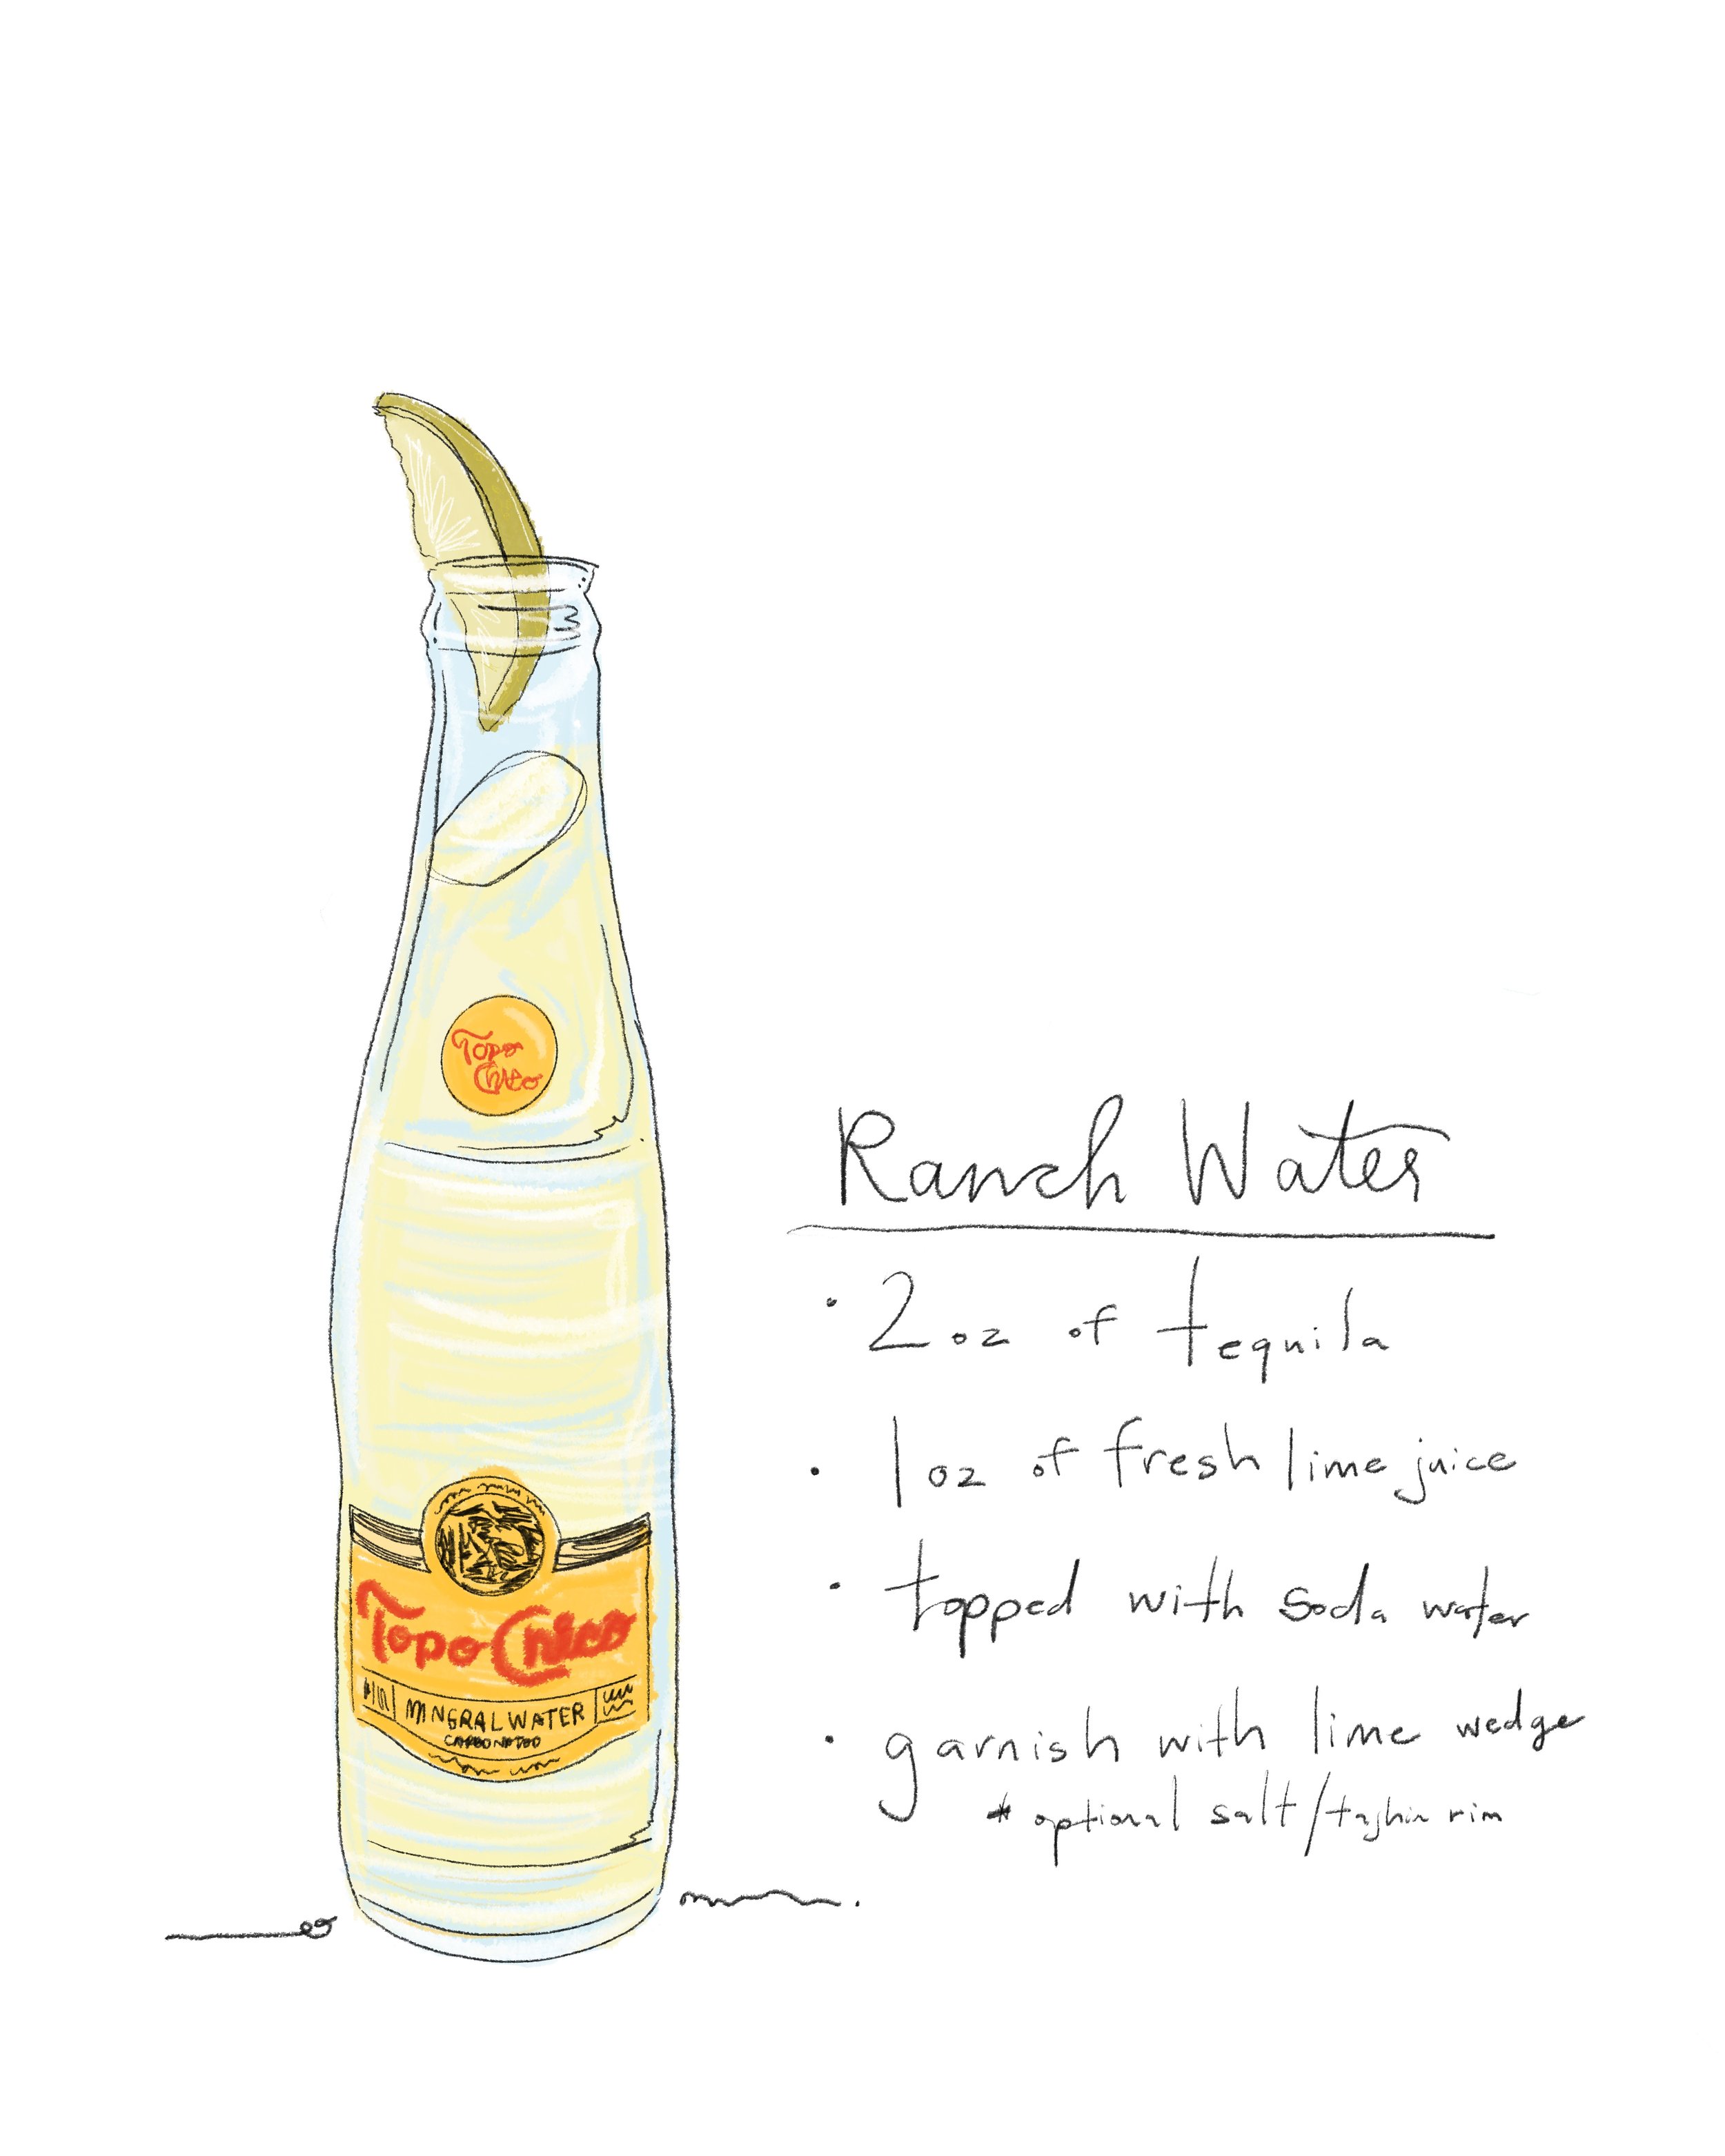 Topo
Chico
Ranch Water
• 2 oz of tequila
• 1 oz of fresh lime juice
• topped with soda water
• garnish with lime wedge
* optional salt/tajhin rim
Topo Chico
MINERAL WATER
CARBONATED